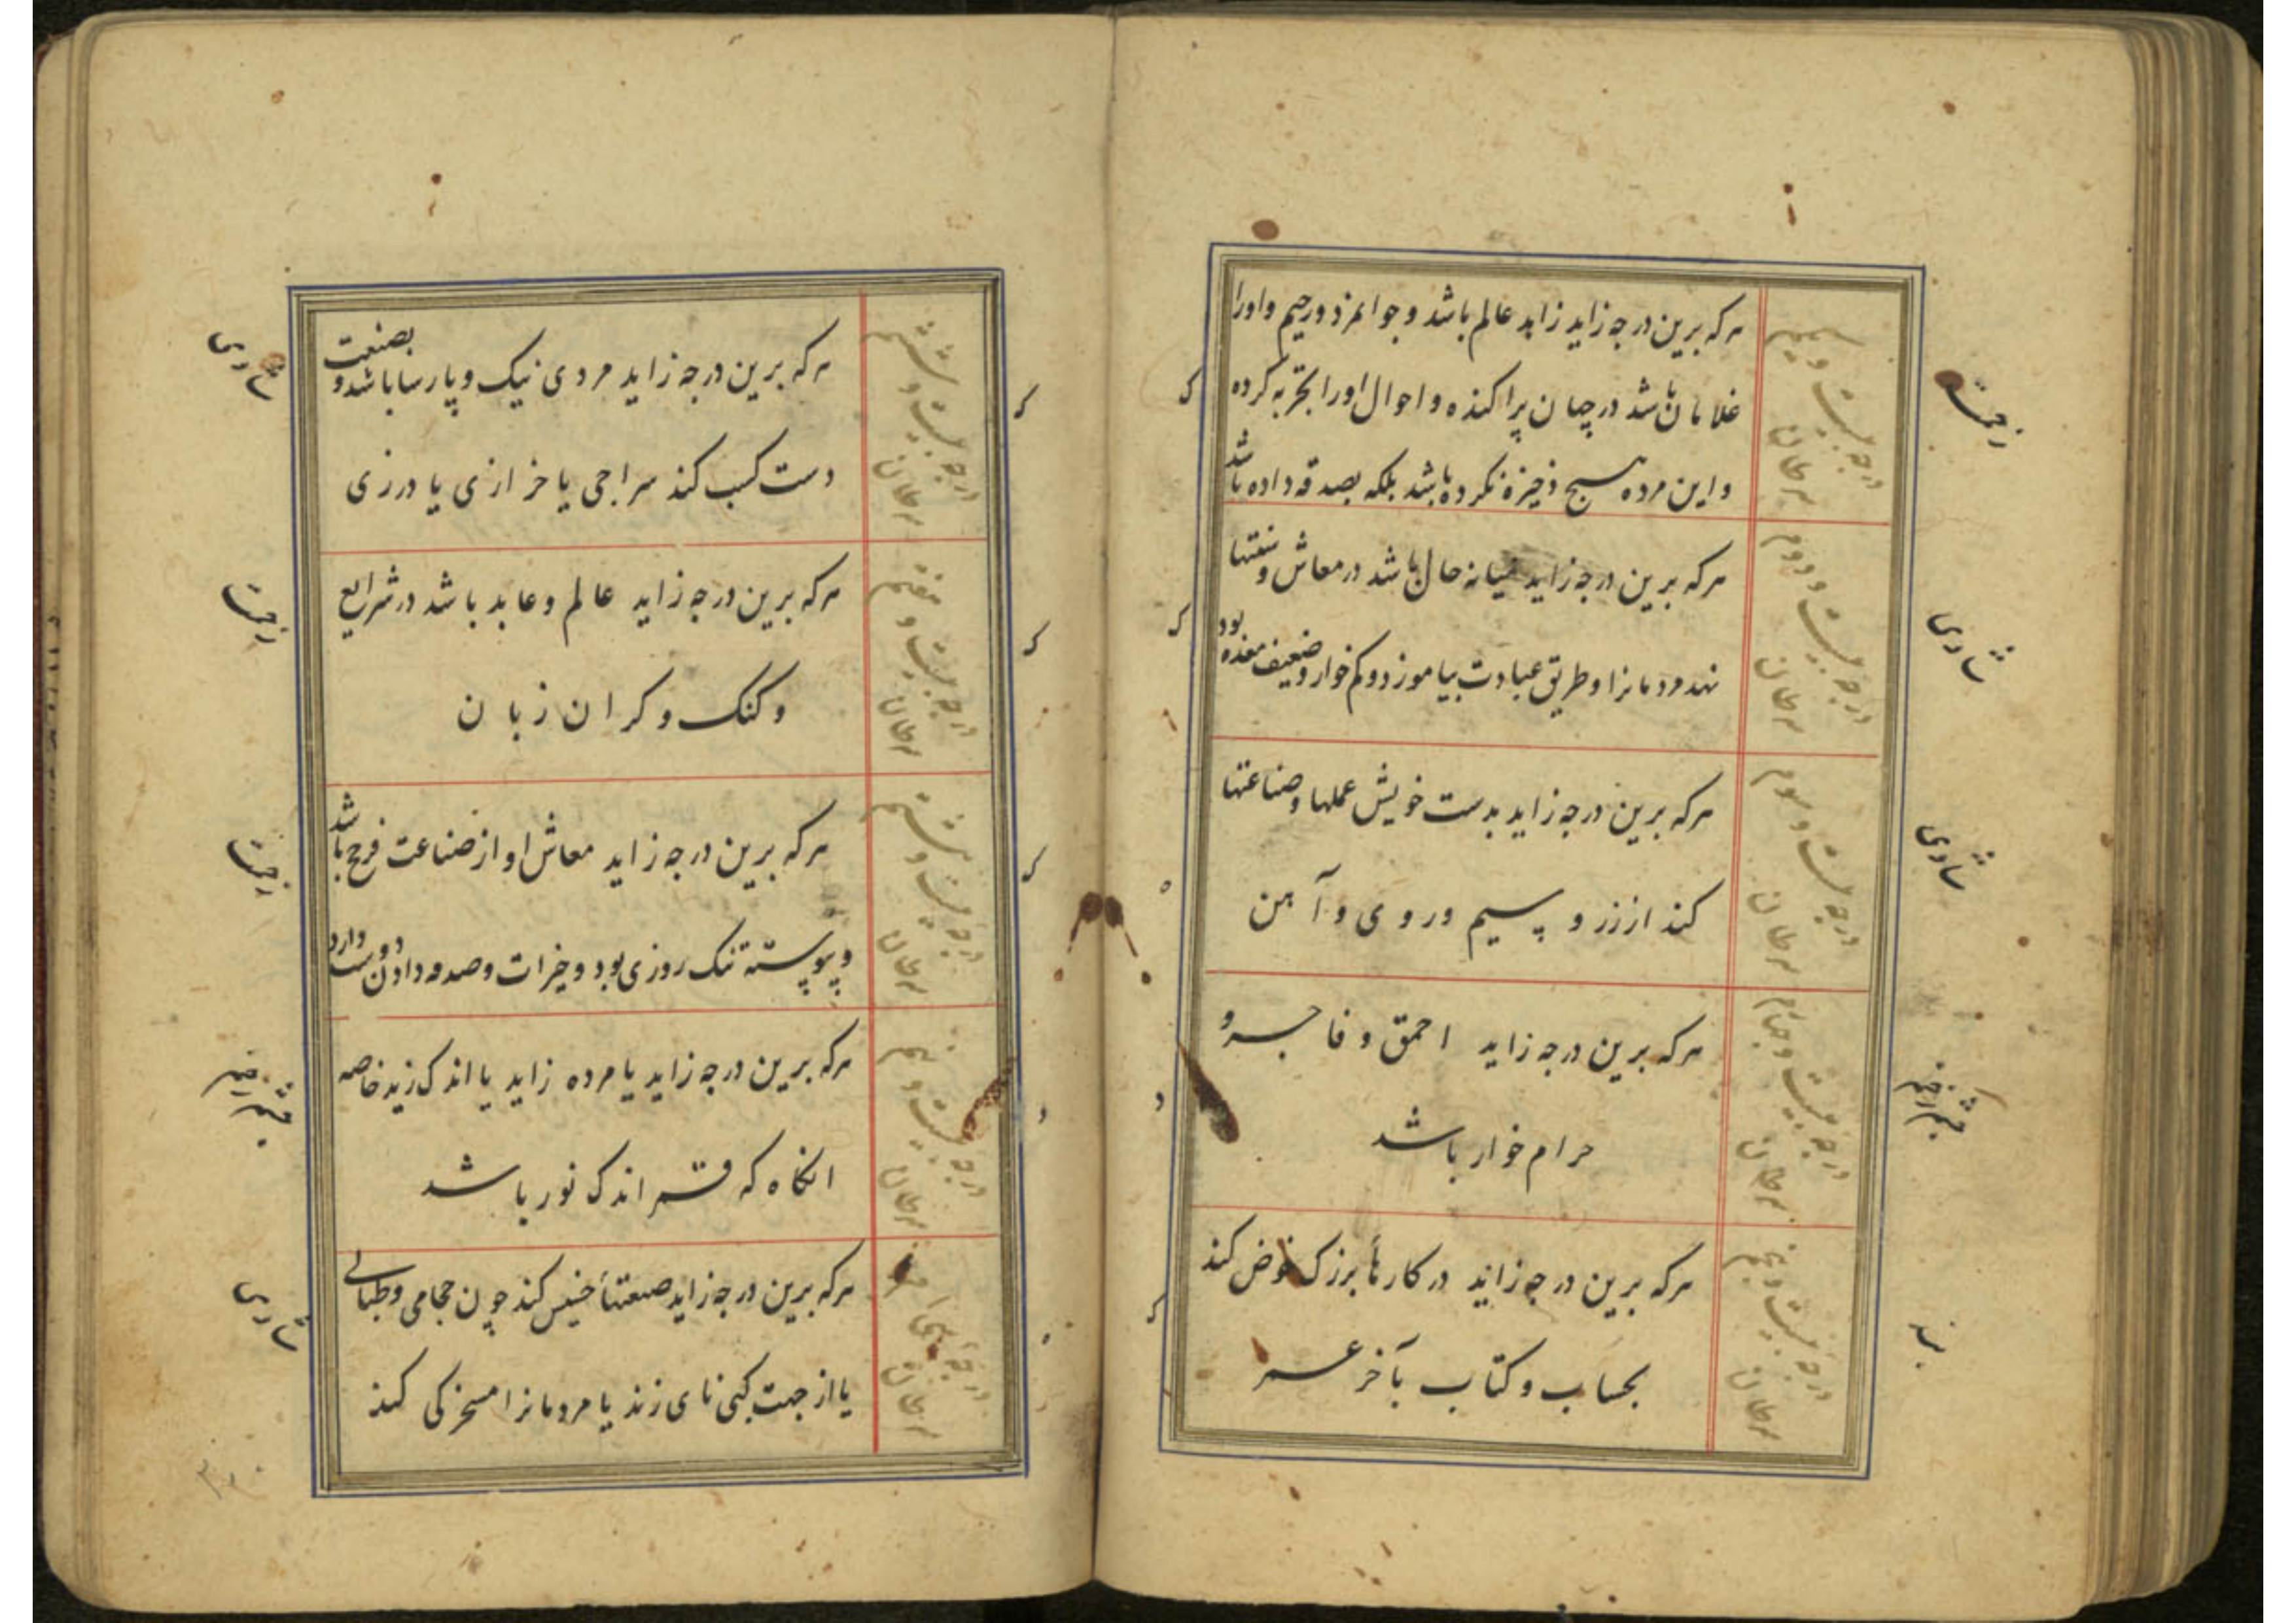 درجه بیست و یکم سرطان
هرکه برین درجه زاید زاید عالم باشد و جوانمرد و رحیم و اورا
غلامان باشد در جهان پراکنده و احوال اورا تجربه کرده
و این مرد هیچ ذخیره نکرده باشد بلکه بصدقه داده باشد
درجه بیست و دوم سرطان
هرکه برین درجه زاید میانه حال باشد در معاش و
نهد مردمانرا و طریق عبادت بیاموزد و کم خوار و ضعیف معده بود
شادی
درجه بیست و سوم سرطان
هرکه برین درجه زاید بدست خویش عملها و صناعتها
کند از زر و سیم و روی و آهن
شادی
درجه بیست و چهارم سرطان
هرکه برین درجه زاید احمق و فاجر و
حرام خوار باشد
درجه بیست و پنجم سرطان
هرکه برین درجه زاید در کارها بزرک خوض کند
بحساب و کتاب بآخر عمر
درجه بیست و ششم سرطان
هرکه برین درجه زاید مردی نیک و پارسا باشد و بصنعت
دست کسب کند سراجی یا خرازی یا درزی
درجه بیست و هفتم سرطان
هرکه برین درجه زاید عالم و عابد باشد در شرایع
و کنک و کران زبان
درجه بیست و هشتم سرطان
هرکه برین درجه زاید معاش او از صناعت فرح باشد
و پیوسته تنک روزی بود و خیرات و صدقه دادن دوست دارد
درجه بیست و نهم سرطان
هرکه برین درجه زاید یا مرده زاید یا اندک زید خاصه
انکاه که قمر اندک نور باشد
درجه سی ام سرطان
هرکه برین درجه زاید صنعتهاء خسیس کند چون حجامی و طبالی
یا از جهت کسی نای زند یا مردمانرا مسخرکی کند